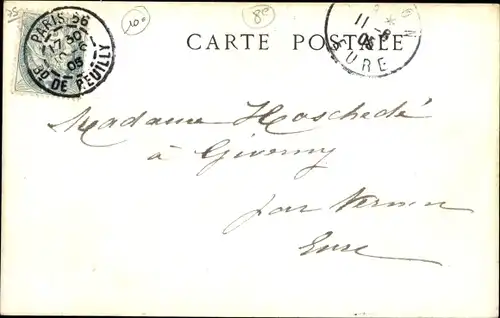 75
10-
80
PARIS 56
17 30
05
BD DE REUILLY
11
05
EURE
CARTE POSTALE
Madame Hoschedé
à Giverny
par Vernon
Eure